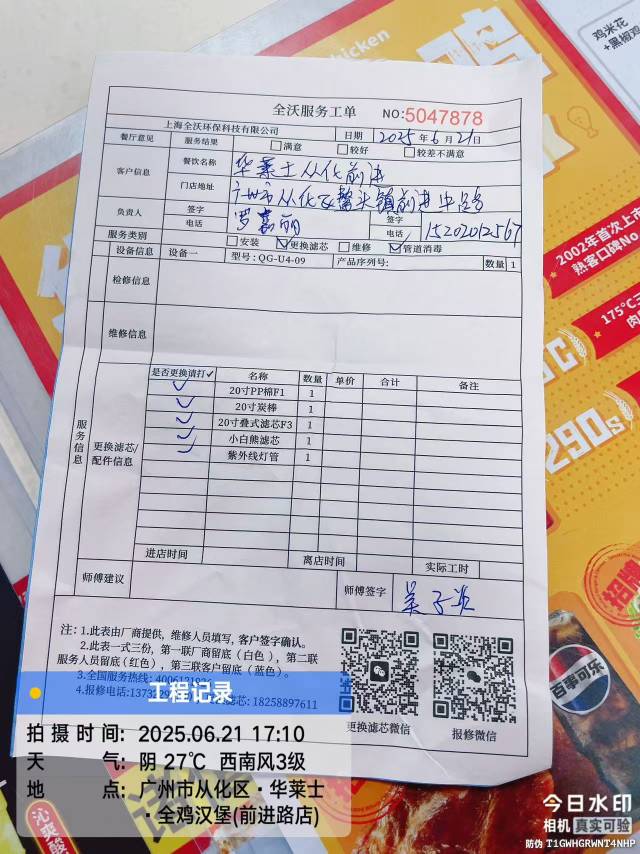 鸡米花
+黑椒鸡
chicken
鸡
全沃服务工单
NO:5047878
上海全沃环保科技有限公司
日期 2025年6月21日
餐厅意见 服务结果 满意 较好 较差不满意
客户信息 餐饮名称 华莱士从化前进
门店地址 广州市从化区鳌头镇前进中路
负责人 签字 罗嘉丽 签字
电话 电话 15202012567
服务类别 安装 更换滤芯 维修 管道消毒
设备信息 设备一 型号:QG-U4-09 产品序列号: 数量 1
检修信息
维修信息
服务信息
更换滤芯/配件信息
是否更换请打✓ 名称 数量 单价 合计 备注
✓ 20寸PP棉F1 1
✓ 20寸炭棒 1
✓ 20寸叠式滤芯F3 1
✓ 小白熊滤芯 1
✓ 紫外线灯管 1
进店时间 离店时间 实际工时
师傅建议 师傅签字
注:1.此表由厂商提供,维修人员填写,客户签字确认。
2.此表一式三份,第一联厂商留底(白色),第二联
服务人员留底(红色),第三联客户留底(蓝色)。
3.全国服务热线:
4.报修电话:137 滤芯:18258897611
更换滤芯微信
报修微信
2002年首次上市
熟客口碑No
175℃
290s
招牌
百事可乐
沁爽酸
工程记录
拍摄时间: 2025.06.21 17:10
天气: 阴 27℃ 西南风3级
地点: 广州市从化区·华莱士
·全鸡汉堡(前进路店)
今日水印
相机 真实可验
防伪 T1GWHGRWNT4NHP